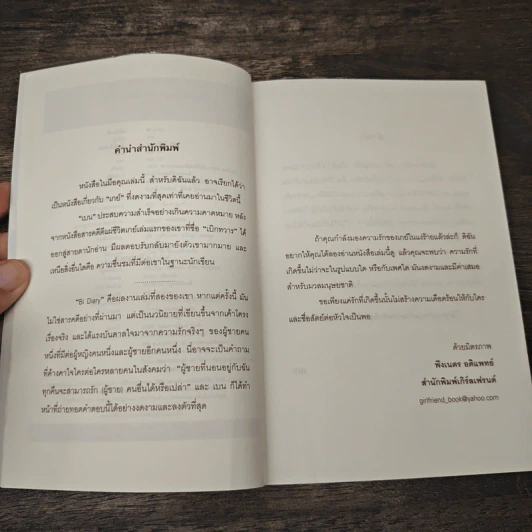 คำนำสำนักพิมพ์
หนังสือในมือคุณเล่มนี้ สำหรับดิฉันแล้ว อาจเรียกได้ว่า
เป็นหนังสือเกี่ยวกับ “เกย์” ที่งดงามที่สุดเท่าที่เคยอ่านมาในชีวิตนี้
“เบน” ประสบความสำเร็จอย่างเกินความคาดหมาย หลัง
จากหนังสือสารคดีดีแม่ชีวิตเกย์เล่มแรกของเขาที่ชื่อ “เบิกทวาร” ได้
ออกสู่สายตานักอ่าน มีผลตอบรับกลับมายังตัวเขามากมาย และ
เหนือสิ่งอื่นใดคือ ความชื่นชมที่มีต่อเขาในฐานะนักเขียน
“Bi Diary” คือผลงานเล่มที่สองของเขา หากแต่ครั้งนี้ มัน
ไม่ใช่สารคดีอย่างที่ผ่านมา แต่เป็นนวนิยายที่เขียนขึ้นจากเค้าโครง
เรื่องจริง และได้แรงบันดาลใจมาจากความรักจริงๆ ของผู้ชายคน
หนึ่งที่มีต่อผู้หญิงคนหนึ่งและผู้ชายอีกคนหนึ่ง นี่อาจจะเป็นคำถาม
ที่ค้างคาใจใครต่อใครหลายคนในสังคมว่า “ผู้ชายที่นอนอยู่กับฉัน
ทุกคืนจะสามารถรัก (ผู้ชาย) คนอื่นได้หรือเปล่า” และ เบน ก็ได้ทำ
หน้าที่ถ่ายทอดคำตอบนี้ได้อย่างงดงามและลงตัวที่สุด
ถ้าคุณกำลังมองความรักของเกย์ในแง่ร้ายแล้วล่ะก็ ดิฉัน
อยากให้คุณได้ลองอ่านหนังสือเล่มนี้ดู แล้วคุณจะพบว่า ความรักที่
เกิดขึ้นไม่ว่าจะในรูปแบบใด หรือกับเพศใด มันงดงามและมีค่าเสมอ
สำหรับมวลมนุษยชาติ
ขอเพียงแค่รักที่เกิดขึ้นนั้นไม่สร้างความเดือดร้อนให้กับใคร
และซื่อสัตย์ต่อหัวใจเป็นพอ
ด้วยมิตรภาพ
พิงเนตร อติแพทย์
สำนักพิมพ์เกิร์ลเฟรนด์
girlfriend_book@yahoo.com